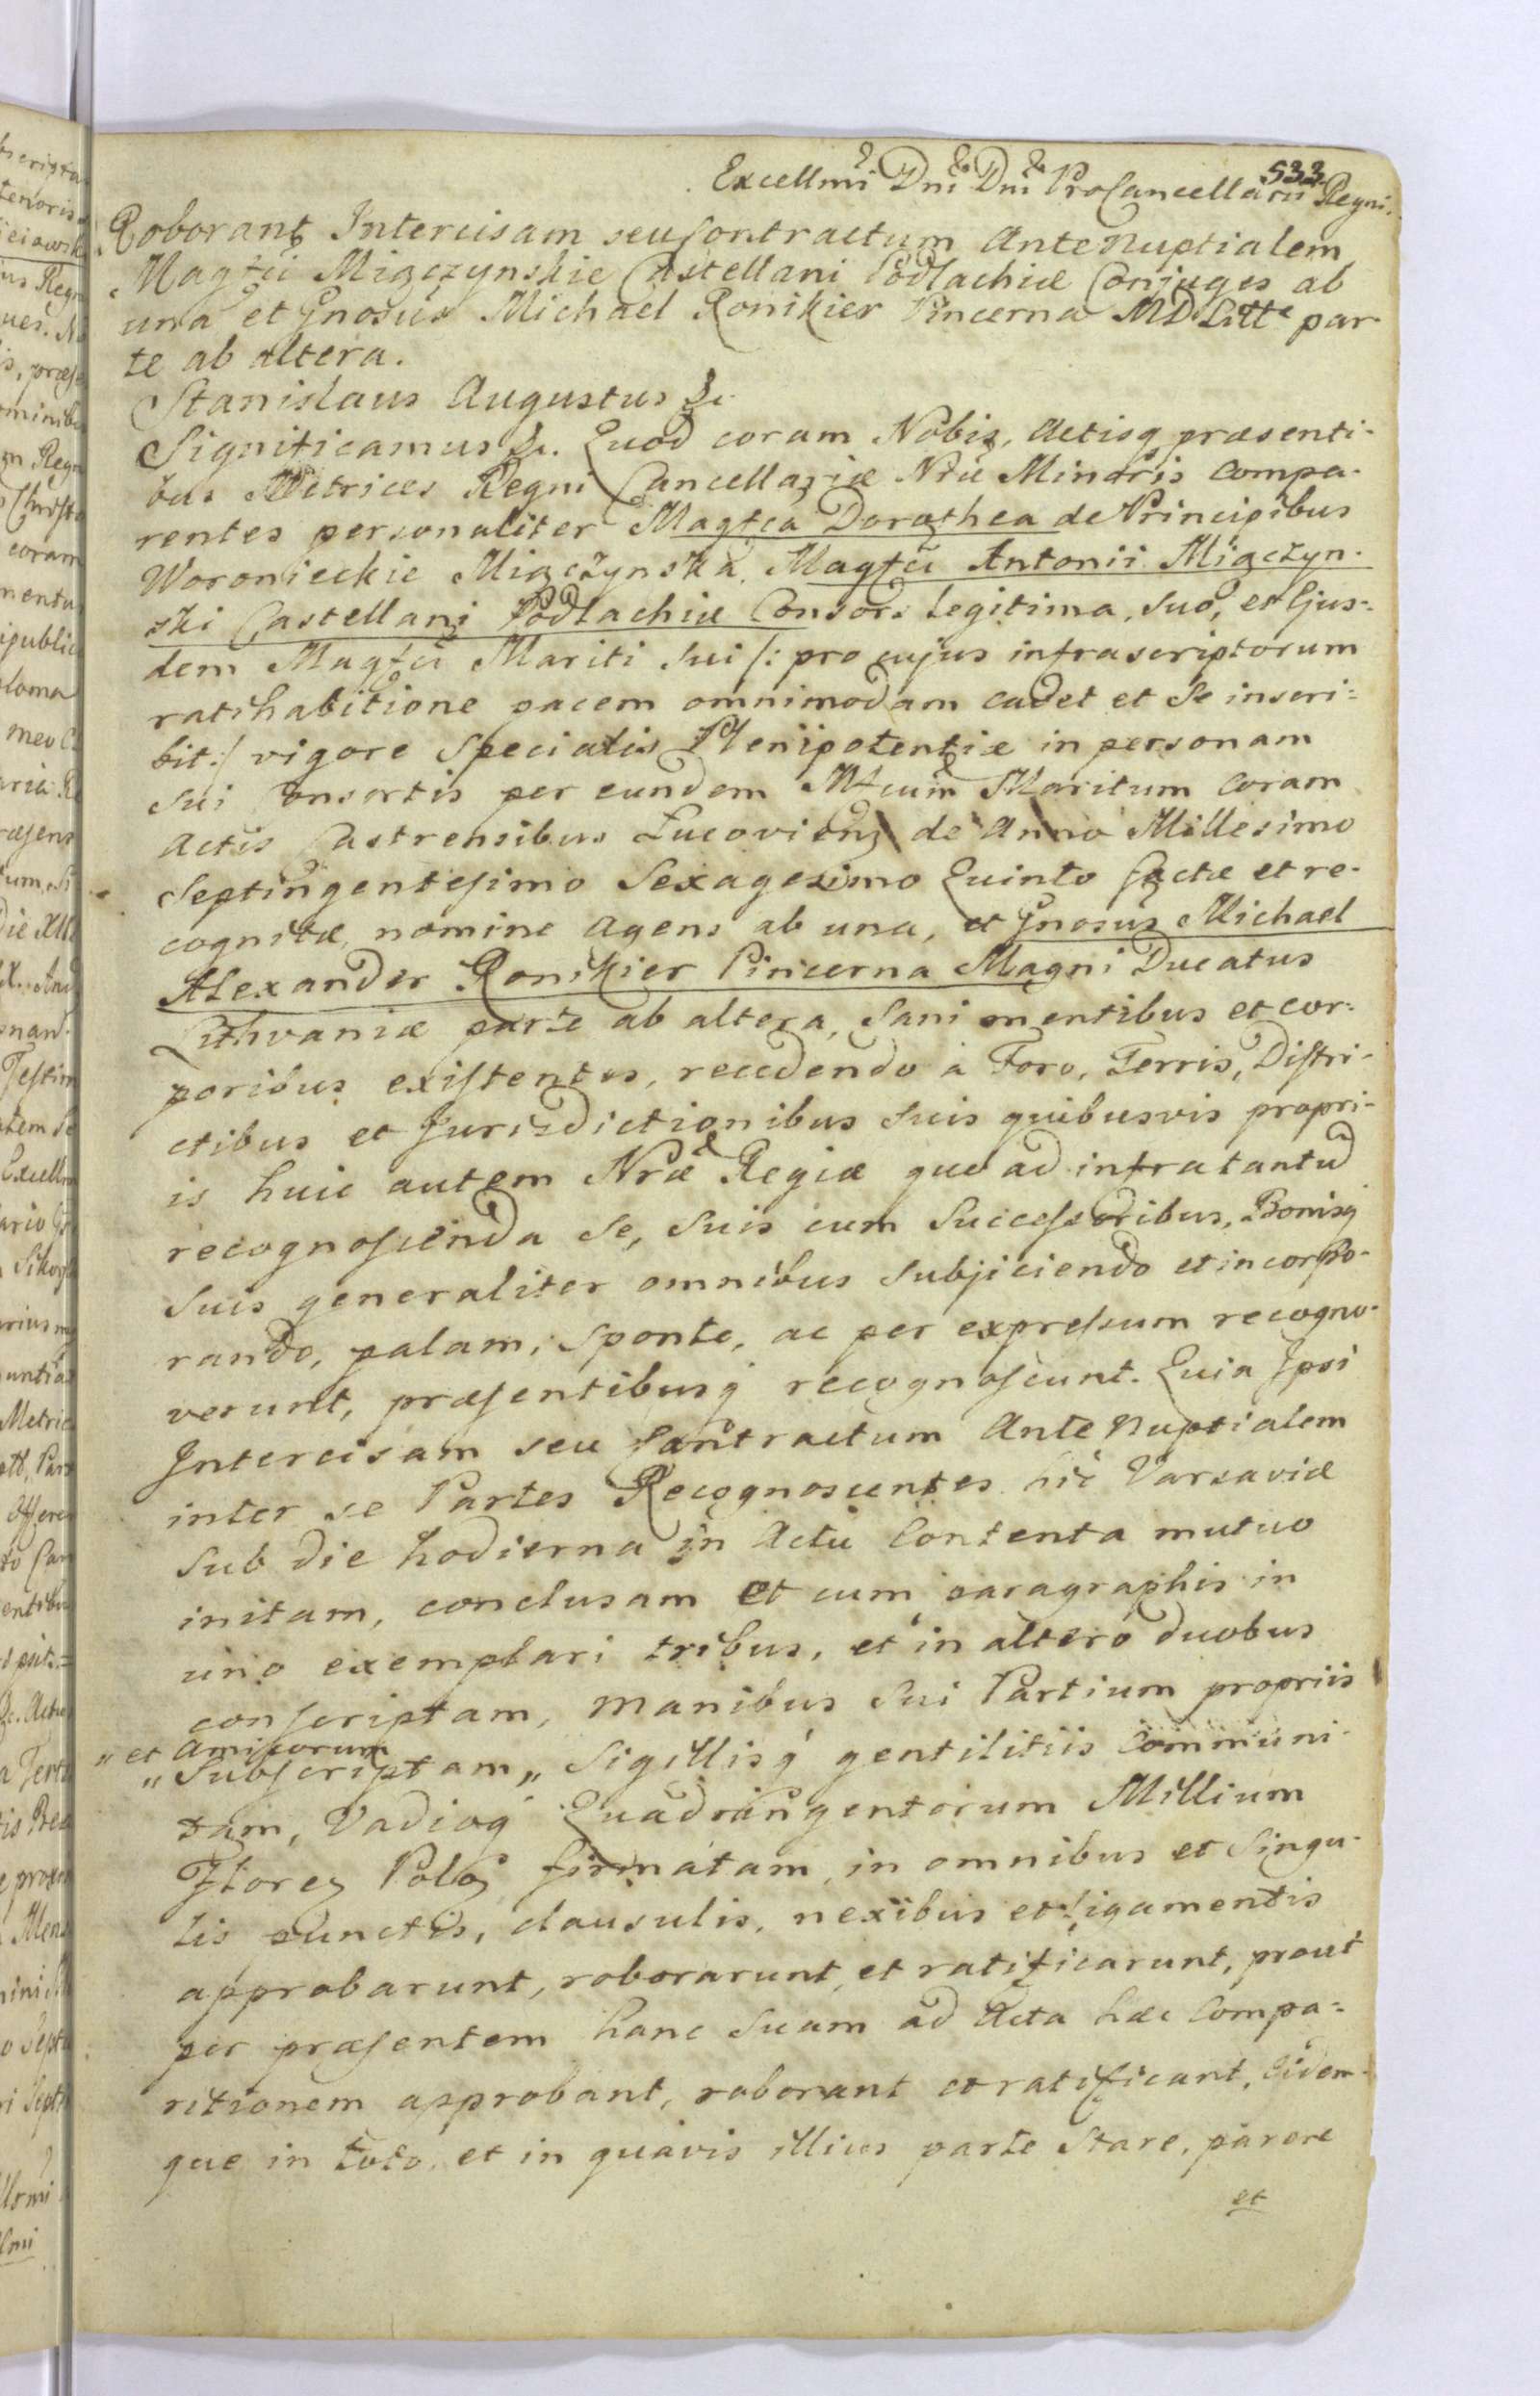 533
Excellmi Dni Dni ProCancellarii Regni.
Roborant Intercisam seu Contractum AnteNuptialem
Magfci Miączynskie Castellani Podlachiæ Conjuges ab
una et Gnosus Michael Ronikier Pincerna MD Litt par
te ab altera.
Stanislaus Augustus &c.
Significamus &c. Quod coram Nobis, Actisq præsenti-
bus Metrices Regni Cancellariæ Nræ Minoris compa-
rentes personaliter Magfca Dorothea de Principibus
Woronieckie Miączynska, Magfci Antonii Miączyn-
ski Castellani Podlachiæ Consors legitima, suo, et Ejus-
dem Magfci Mariti sui /: pro cujus infrascriptorum
ratihabitione pacem omnimodam cadet et se inscri-
bit :/ vigore specialis Plenipotentiæ in personam
sui Consortis per eundem Mfcum Maritum coram
Actis Castrensibus Lucovien de Anno Millesimo
Septingentesimo Sexagesimo Quinto factæ et re-
cognitæ, nomine agens ab una, et Gnosus Michael
Alexander Ronikier Pincerna Magni Ducatus
Lithvaniæ parte ab altera, sani mentibus et cor-
poribus existentes, recedendo à Foro, Terris, Distri-
ctibus et Jurisdictionibus suis quibusvis propri-
is huic autem Nræ Regiæ quo ad infra tantud
recognoscenda se, suis cum Successoribus, Bonisq
suis generaliter omnibus subjiciendo et incorpo-
rando, palam, sponte, ac per expressum recogno-
verunt, præsentibusq recognoscunt. Quia Ipsi
Intercisam seu Contractum AnteNuptialem
inter se Partes Recognoscentes hic Varsaviæ
sub die hodierna in Actu Contenta mutuo
initam, conclusam et cum paragraphis in
uno exemplari tribus, et in altero duobus
conscriptam, manibus sui Partium propriis
„et Amicorum
„subscriptam„ Sigillisq gentilitiis communi-
tam, Vadioq Quadringentorum Millium
Floren Polon firmatam, in omnibus et singu-
lis punctis, clausulis, nexibus et ligamentis
approbarunt, roborarunt et ratificarunt, prout
per præsentem hanc suam ad Acta hæc Compa-
ritionem approbant, roborant et ratificant, Eidem-
que in toto, et in quavis illius parte stare, parere
et